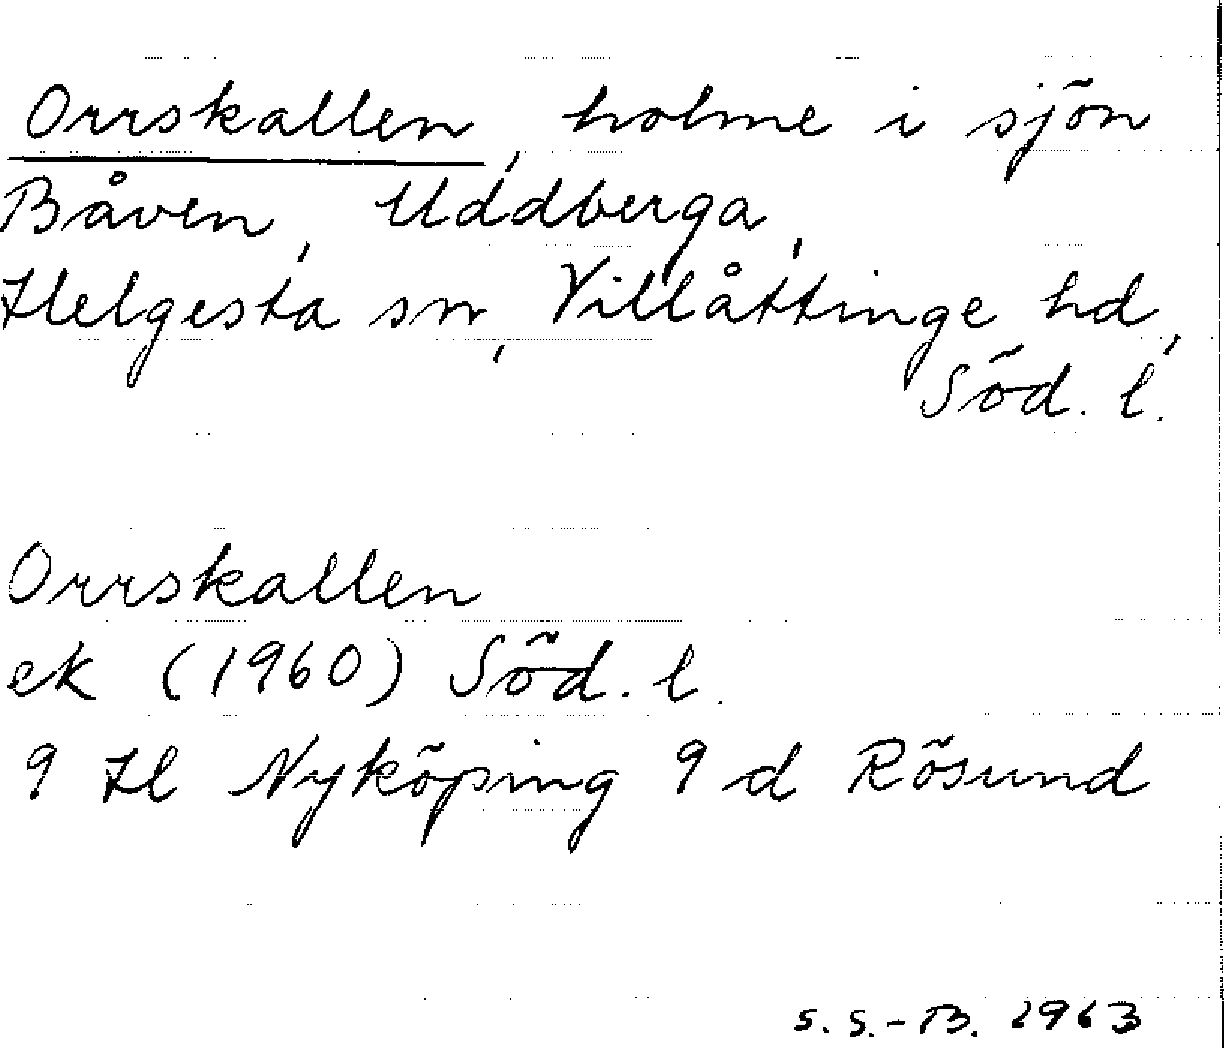 Orrskallen, holme i sjön
Båven, Uddberga,
Helgesta sn, Villåttinge hd,
Söd. l.
Orrskallen
ek (1960) Söd. l.
9 H Nyköping 9 d Rösund
S. S.-B. 1963